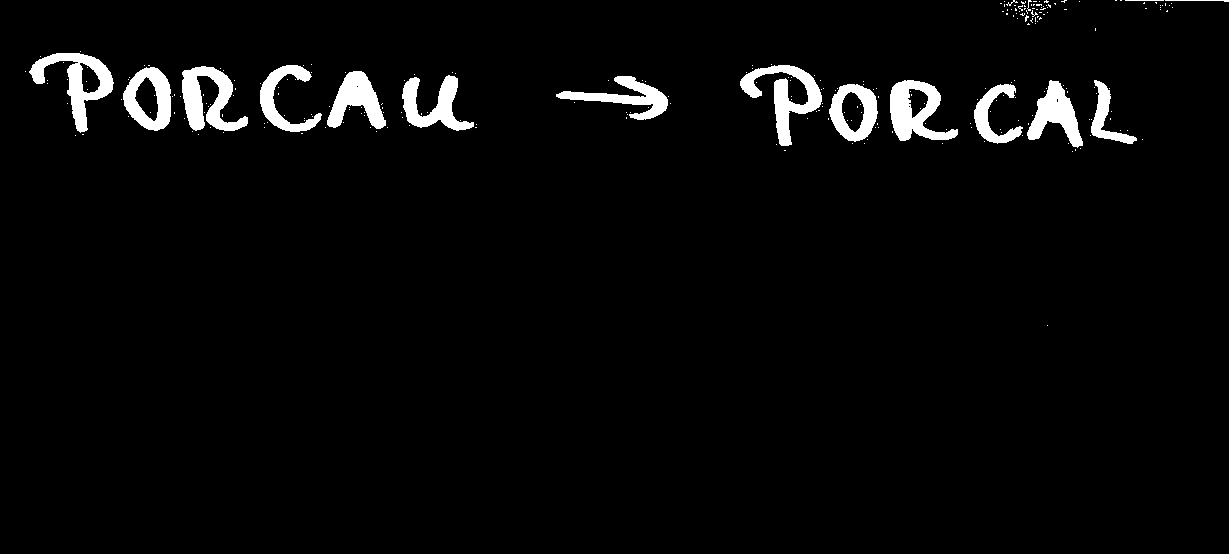 PORCAU → PORCAL